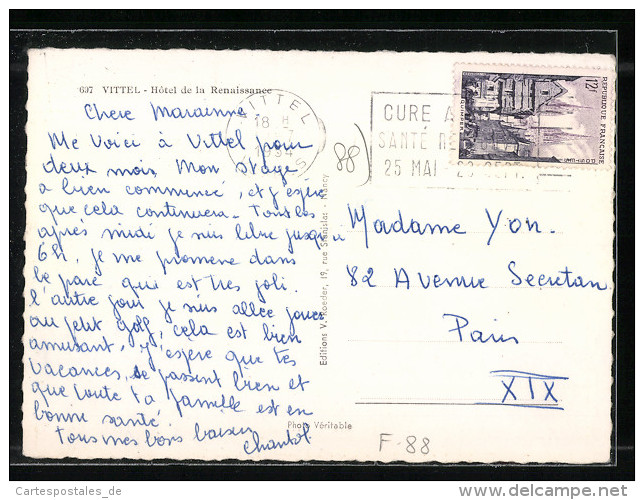 697 VITTEL - Hôtel de la Renaissance
Chere Marainne
Me Voici à Vittel pour
deux mois, Mon Stage
a bien commencé, et j'espère
que cela continuera. Tous les
après midi je suis libre jusqu'a
6h, je me promène dans
le parc qui est très joli.
l'autre jour je suis allée jouer
au petit golf, cela est bien
amusant, j'espère que tes
Vacances, se passent bien et
que toute ta famille est en
bonne santé.
Tous mes bons baisers
Chantal
VITTEL
18 H
1954
CURE A
SANTÉ
25 MAI - 20 SEPT.
88
12F
REPUBLIQUE FRANÇAISE
QUIMPER
Editions V. Roeder, 19, rue Stanislas - Nancy
Madame Yon.
82 Avenue Secretan
Paris
XIX
Photo Véritable
F-88
Cartespostales_de
www.delcampe.net